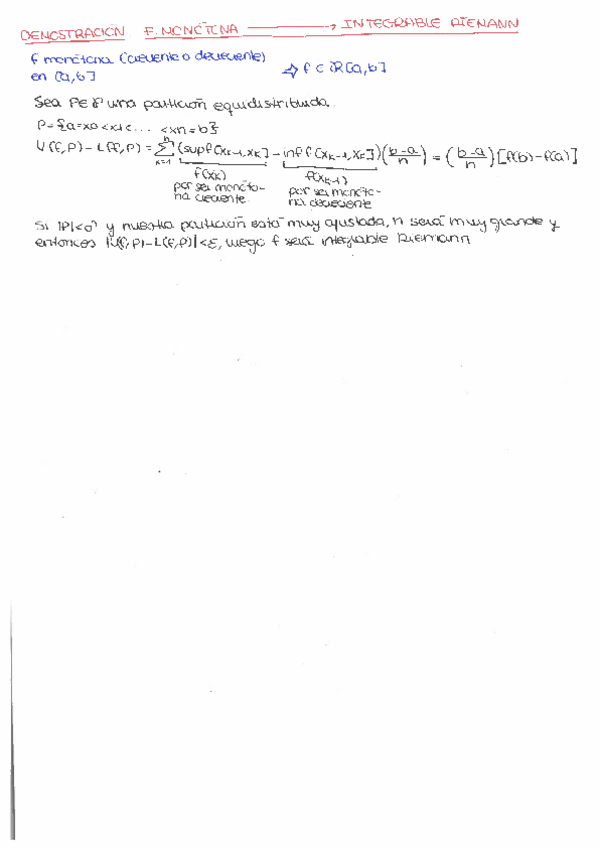 DEMOSTRACIÓN F. MONÓTONA ⟶ INTEGRABLE RIEMANN
f monótona (creciente o decreciente)
en [a,b] ⇒ f ∈ R[a,b]
Sea P∈P una partición equidistribuida.
P={a=x0<x1<... <xn=b}
U(f,P)-L(f,P) = Σ_{k=1}^{n} (sup f[xk-1,xk] - inf f[xk-1,xk]) (b-a/n) = (b-a/n) [f(b)-f(a)]
f(xk) f(xk-1)
por ser monóto- por ser monóto-
na creciente. na decreciente
Si |P|<δ y nuestra partición está muy ajustada, n será muy grande y
entonces |U(f,P)-L(f,P)|<ε, luego f será integrable Riemann